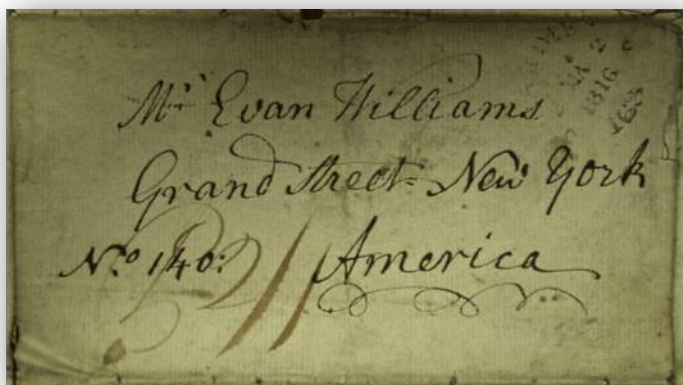 Mr. Evan Williams
Grand Street New York
No. 140:
America
1816